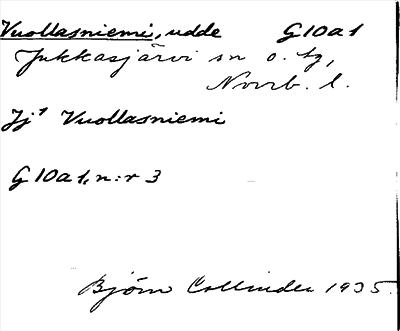 Vuollasniemi, udde G10a1
Jukkasjärvi sn o. tg,
Norrb. l.
Jj¹ Vuollasniemi
G10a1, n:r 3
Björn Collinder 1935.